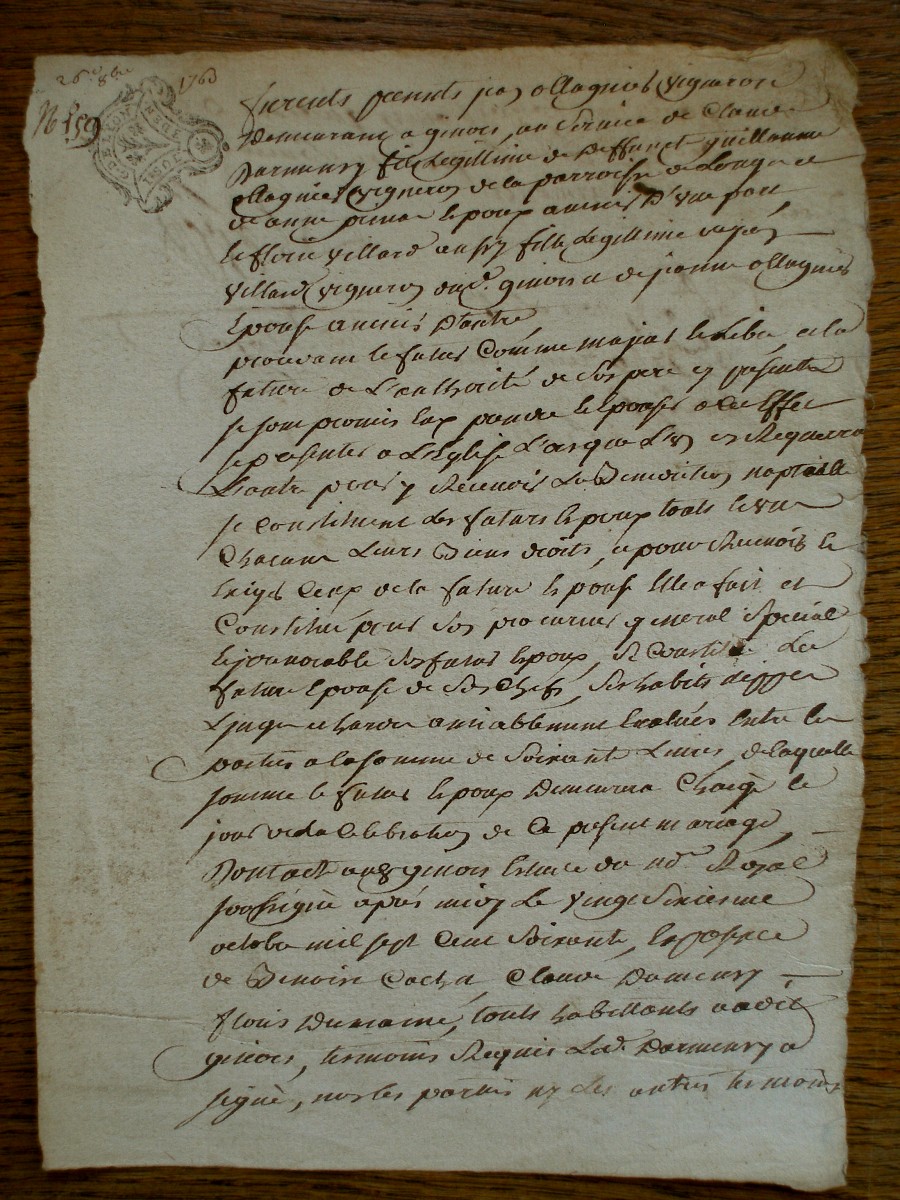 26e 8bre 1763
N 159
furents presents jean ollagnier vigneron
Demeurant a ginois, au Service de Claude
Darmenry fils Legitime de Deffunct guillaume
ollagnier vigneron de la parroisse de Longe et
de anne Epoux a venir D'Une part
et florie villard aussy fille Legitime
villard vigneron dud. ginois et de jeanne ollagnier
Epouse a venir D'autre
procedant le futur Comme majeur et Libre et la
future de L'authorité de Son pere y présente
se sont promis Eux prendre et Epouser a Cet Effet
se présenter a L'Eglise Lorsque L'un en Requerra
L'autre pour y Recevoir La Benediction nuptialle
se Constituent Les futurs Epoux touts et un
Chacuns Leurs Biens droits, et pour Recevoir et
Exiger Ceux de la future Epouse Elle a fait et
Constitué pour Son procureur general Special
et jrrevocable Son futur Epoux, Se Constitue La
future Epouse de Ses Chefs, Ses habits
Linge et hardes amiablement Evalués Entre Les
parties a la Somme de Soixante Livres, de laquelle
somme le futur Epoux Demeurera Chargé le
jour de la Celebration de Ce present mariage,
Dont acte aud ginois Etude du nore Royal
soussigné après midy Le vingt Sixienne
octobre mil Sept Cent Soixante, En presence
de Benoist Cachet, Claude Darmenry
flouis Dumaine, touts habittants audit
ginois, temoins Requis Led. Darmenry a
signé, non les parties ny Les autres temoins